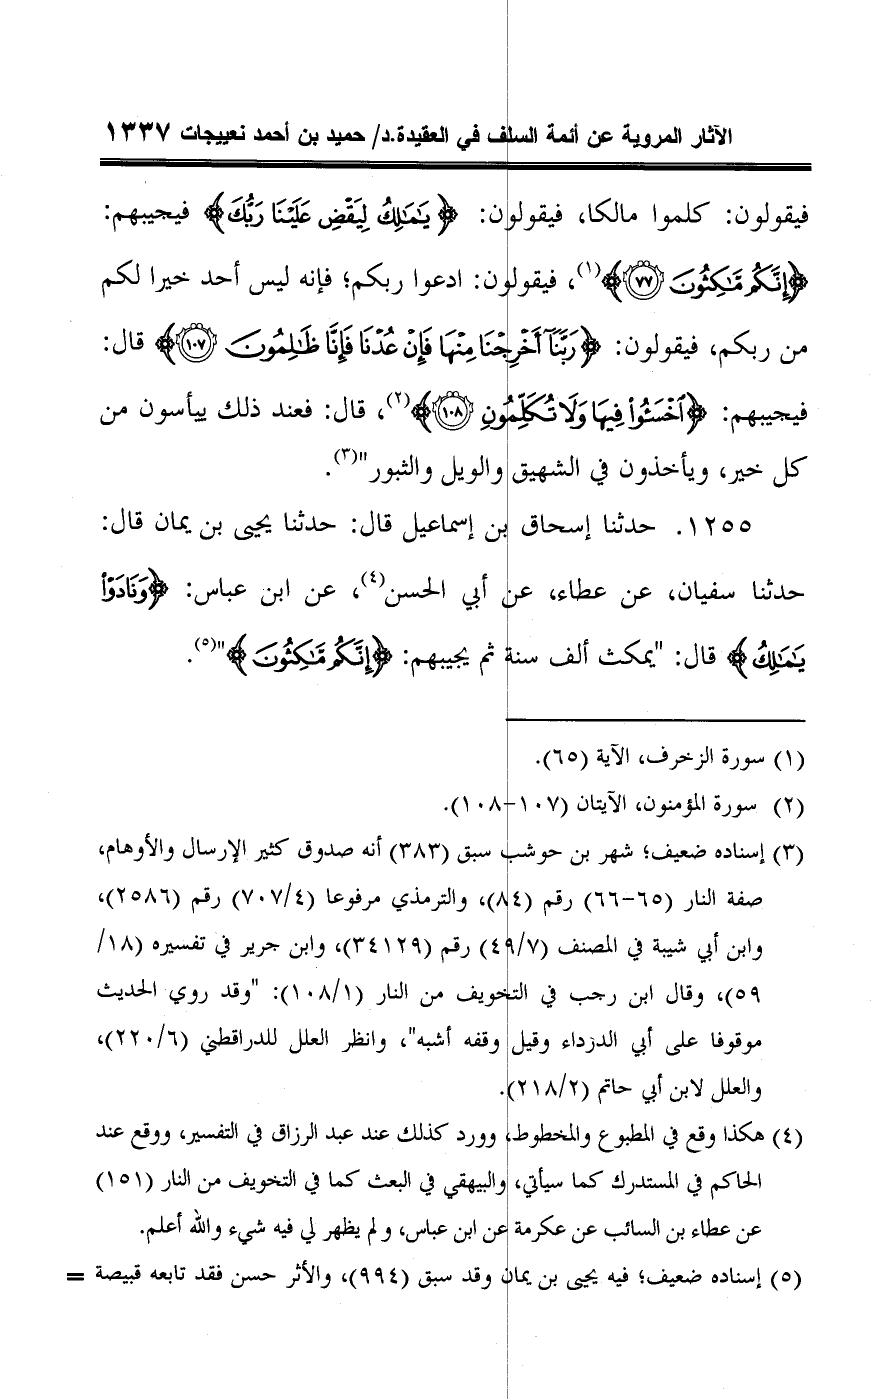 الآثار المروية عن أئمة السلف في العقيدة.د/ حميد بن أحمد نعييجات ١٣٣٧
فيقولون: كلموا مالكا، فيقولون: ﴿يَٰمَٰلِكُ لِيَقْضِ عَلَيْنَا رَبُّكَ﴾ فيجيبهم:
﴿إِنَّكُم مَّٰكِثُونَ ٧٧﴾(١)، فيقولون: ادعوا ربكم؛ فإنه ليس أحد خيرا لكم
من ربكم، فيقولون: ﴿رَبَّنَآ أَخْرِجْنَا مِنْهَا فَإِنْ عُدْنَا فَإِنَّا ظَٰلِمُونَ ١٠٧﴾ قال:
فيجيبهم: ﴿ٱخْسَـُٔوا۟ فِيهَا وَلَا تُكَلِّمُونِ ١٠٨﴾(٢)، قال: فعند ذلك ييأسون من
كل خير، ويأخذون في الشهيق والويل والثبور"(٣).
١٢٥٥. حدثنا إسحاق بن إسماعيل قال: حدثنا يحيى بن يمان قال:
حدثنا سفيان، عن عطاء، عن أبي الحسن(٤)، عن ابن عباس: ﴿وَنَادَوْا۟
يَٰمَٰلِكُ﴾ قال: "يمكث ألف سنة ثم يجيبهم: ﴿إِنَّكُم مَّٰكِثُونَ﴾"(٥).
(١) سورة الزخرف، الآية (٦٥).
(٢) سورة المؤمنون، الآيتان (١٠٧-١٠٨).
(٣) إسناده ضعيف؛ شهر بن حوشب سبق (٣٨٣) أنه صدوق كثير الإرسال والأوهام،
صفة النار (٦٥-٦٦) رقم (٨٤)، والترمذي مرفوعا (٧٠٧/٤) رقم (٢٥٨٦)،
وابن أبي شيبة في المصنف (٤٩/٧) رقم (٣٤١٢٩)، وابن جرير في تفسيره (١٨/
٥٩)، وقال ابن رجب في التخويف من النار (١٠٨/١): "وقد روي الحديث
موقوفا على أبي الدرداء وقيل وقفه أشبه"، وانظر العلل للدراقطني (٢٢٠/٦)،
والعلل لابن أبي حاتم (٢١٨/٢).
(٤) هكذا وقع في المطبوع والمخطوط، وورد كذلك عند عبد الرزاق في التفسير، ووقع عند
الحاكم في المستدرك كما سيأتي، والبيهقي في البعث كما في التخويف من النار (١٥١)
عن عطاء بن السائب عن عكرمة عن ابن عباس، ولم يظهر لي فيه شيء والله أعلم.
(٥) إسناده ضعيف؛ فيه يحيى بن يمان وقد سبق (٩٩٤)، والأثر حسن فقد تابعه قبيصة =